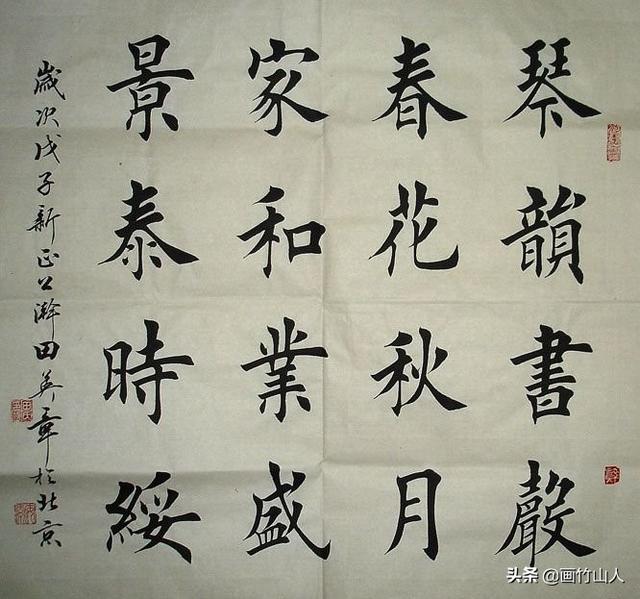 琴韻書聲
春花秋月
家和業盛
景泰時綏
歲次戊子新正公瀚田英章於北京
头条 @画竹山人